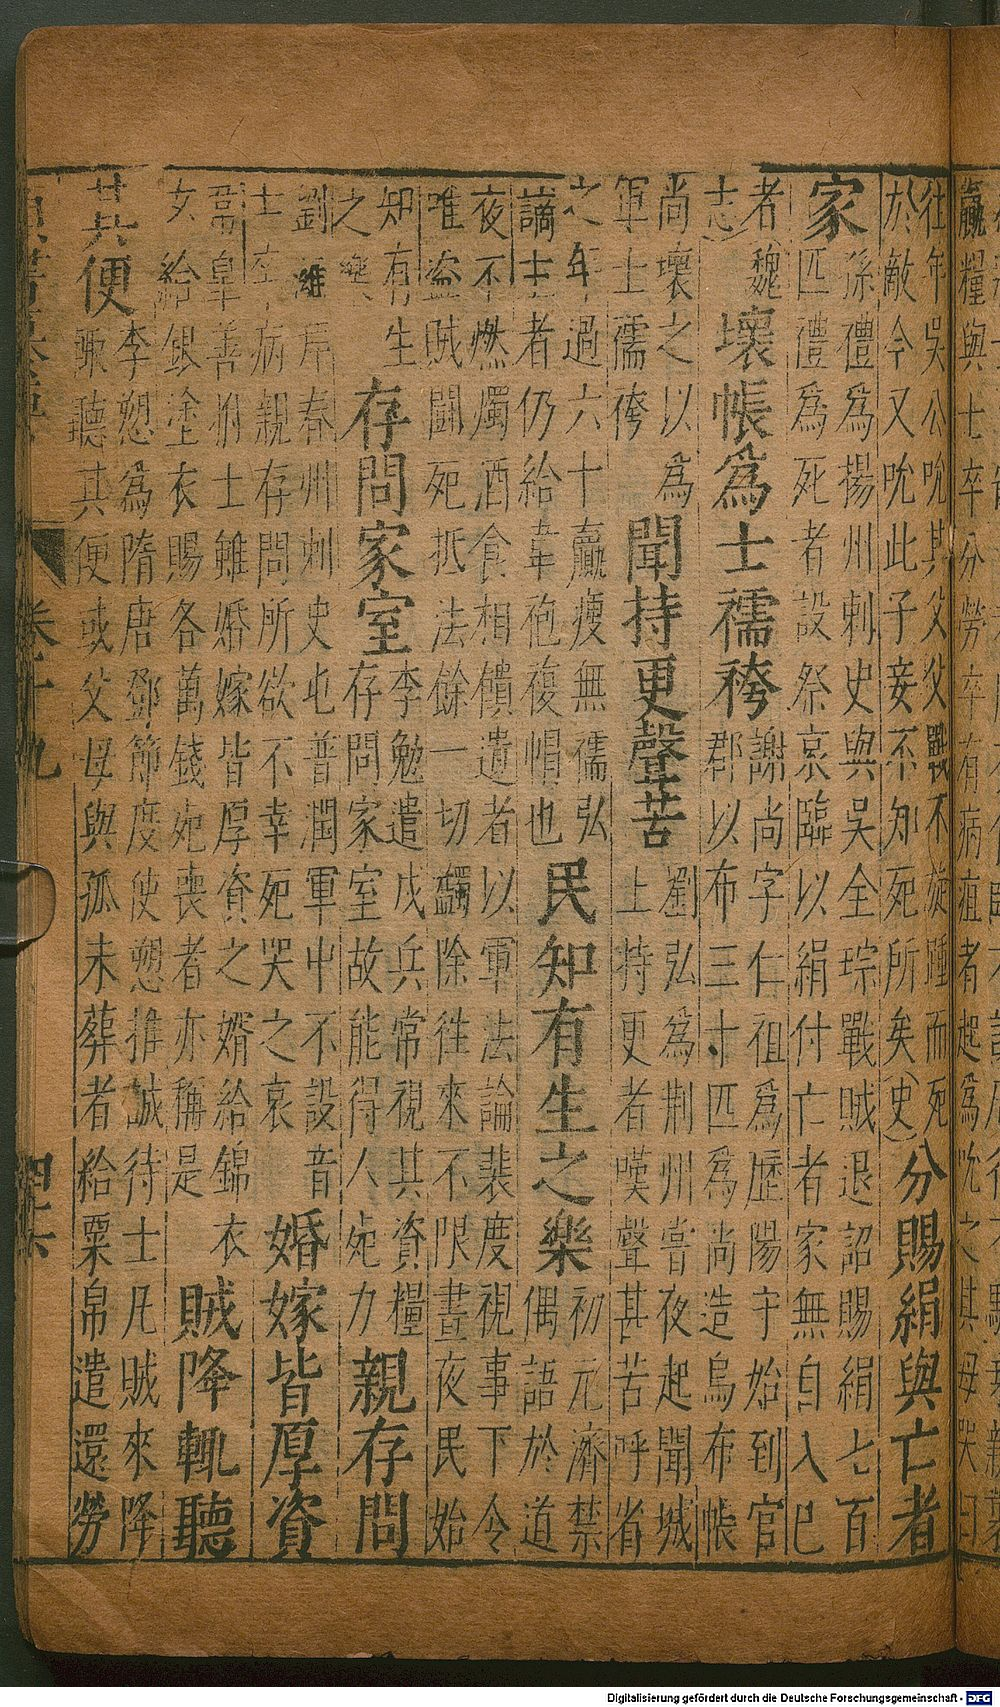 羸糧與士卒分勞卒有病疽者起為吮之其母哭曰
往年吳公吮其父父戰不旋踵而死
於敵今又吮此子妾不知死所矣(史)
分賜絹與亡者
家
孫禮為揚州刺史與吳全琮戰賊退詔賜絹七百
匹禮為死者設祭哀臨以絹付亡者家無自入巳
者魏
志)
壞帳為士襦袴
謝尚字仁祖為歷陽守始到官
郡以布三寸匹為尚造烏布帳
尚壞之以為
軍士襦袴
聞持更聲苦
劉弘為荆州嘗夜起聞城
上持更者嘆聲甚苦呼省
之年過六十羸瘦無襦弘
謫主者仍給韋袍複帽也
民知有生之樂
初元濟禁
偶語於道
夜不燃燭酒食相饋遺者以軍法論裴度視事下令
唯盜賊鬭死抵法餘一切蠲除往來不限晝夜民始
知有生
之樂
存問家室
李勉遣戍兵常視其資糧
存問家室故能得人死力
親存問
劉濰春州刺史也普潤軍中不設音
士卒病親存問所欲不幸死哭之哀
婚嫁皆厚資
皐善拊士雖婚嫁皆厚資之婿給錦衣
女給銀塗衣賜各萬錢死喪者亦稱是
賊降輒聽
其便
李愬為隋唐鄧節度使愬推誠待士凡賊來降
輒聽其便或父母與孤未葬者給粟帛遣還勞
卷十九
四六
Digitalisierung gefördert durch die Deutsche Forschungsgemeinschaft - DFG